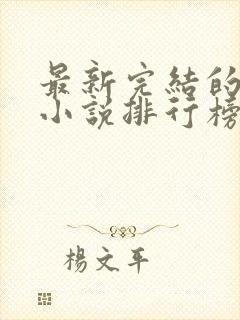 最新完結的
小說排行榜
楊文平